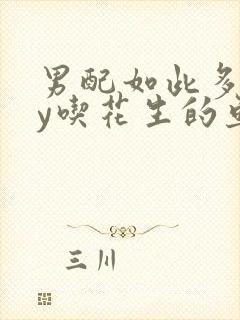 男配如此多
y喫花生的
三川